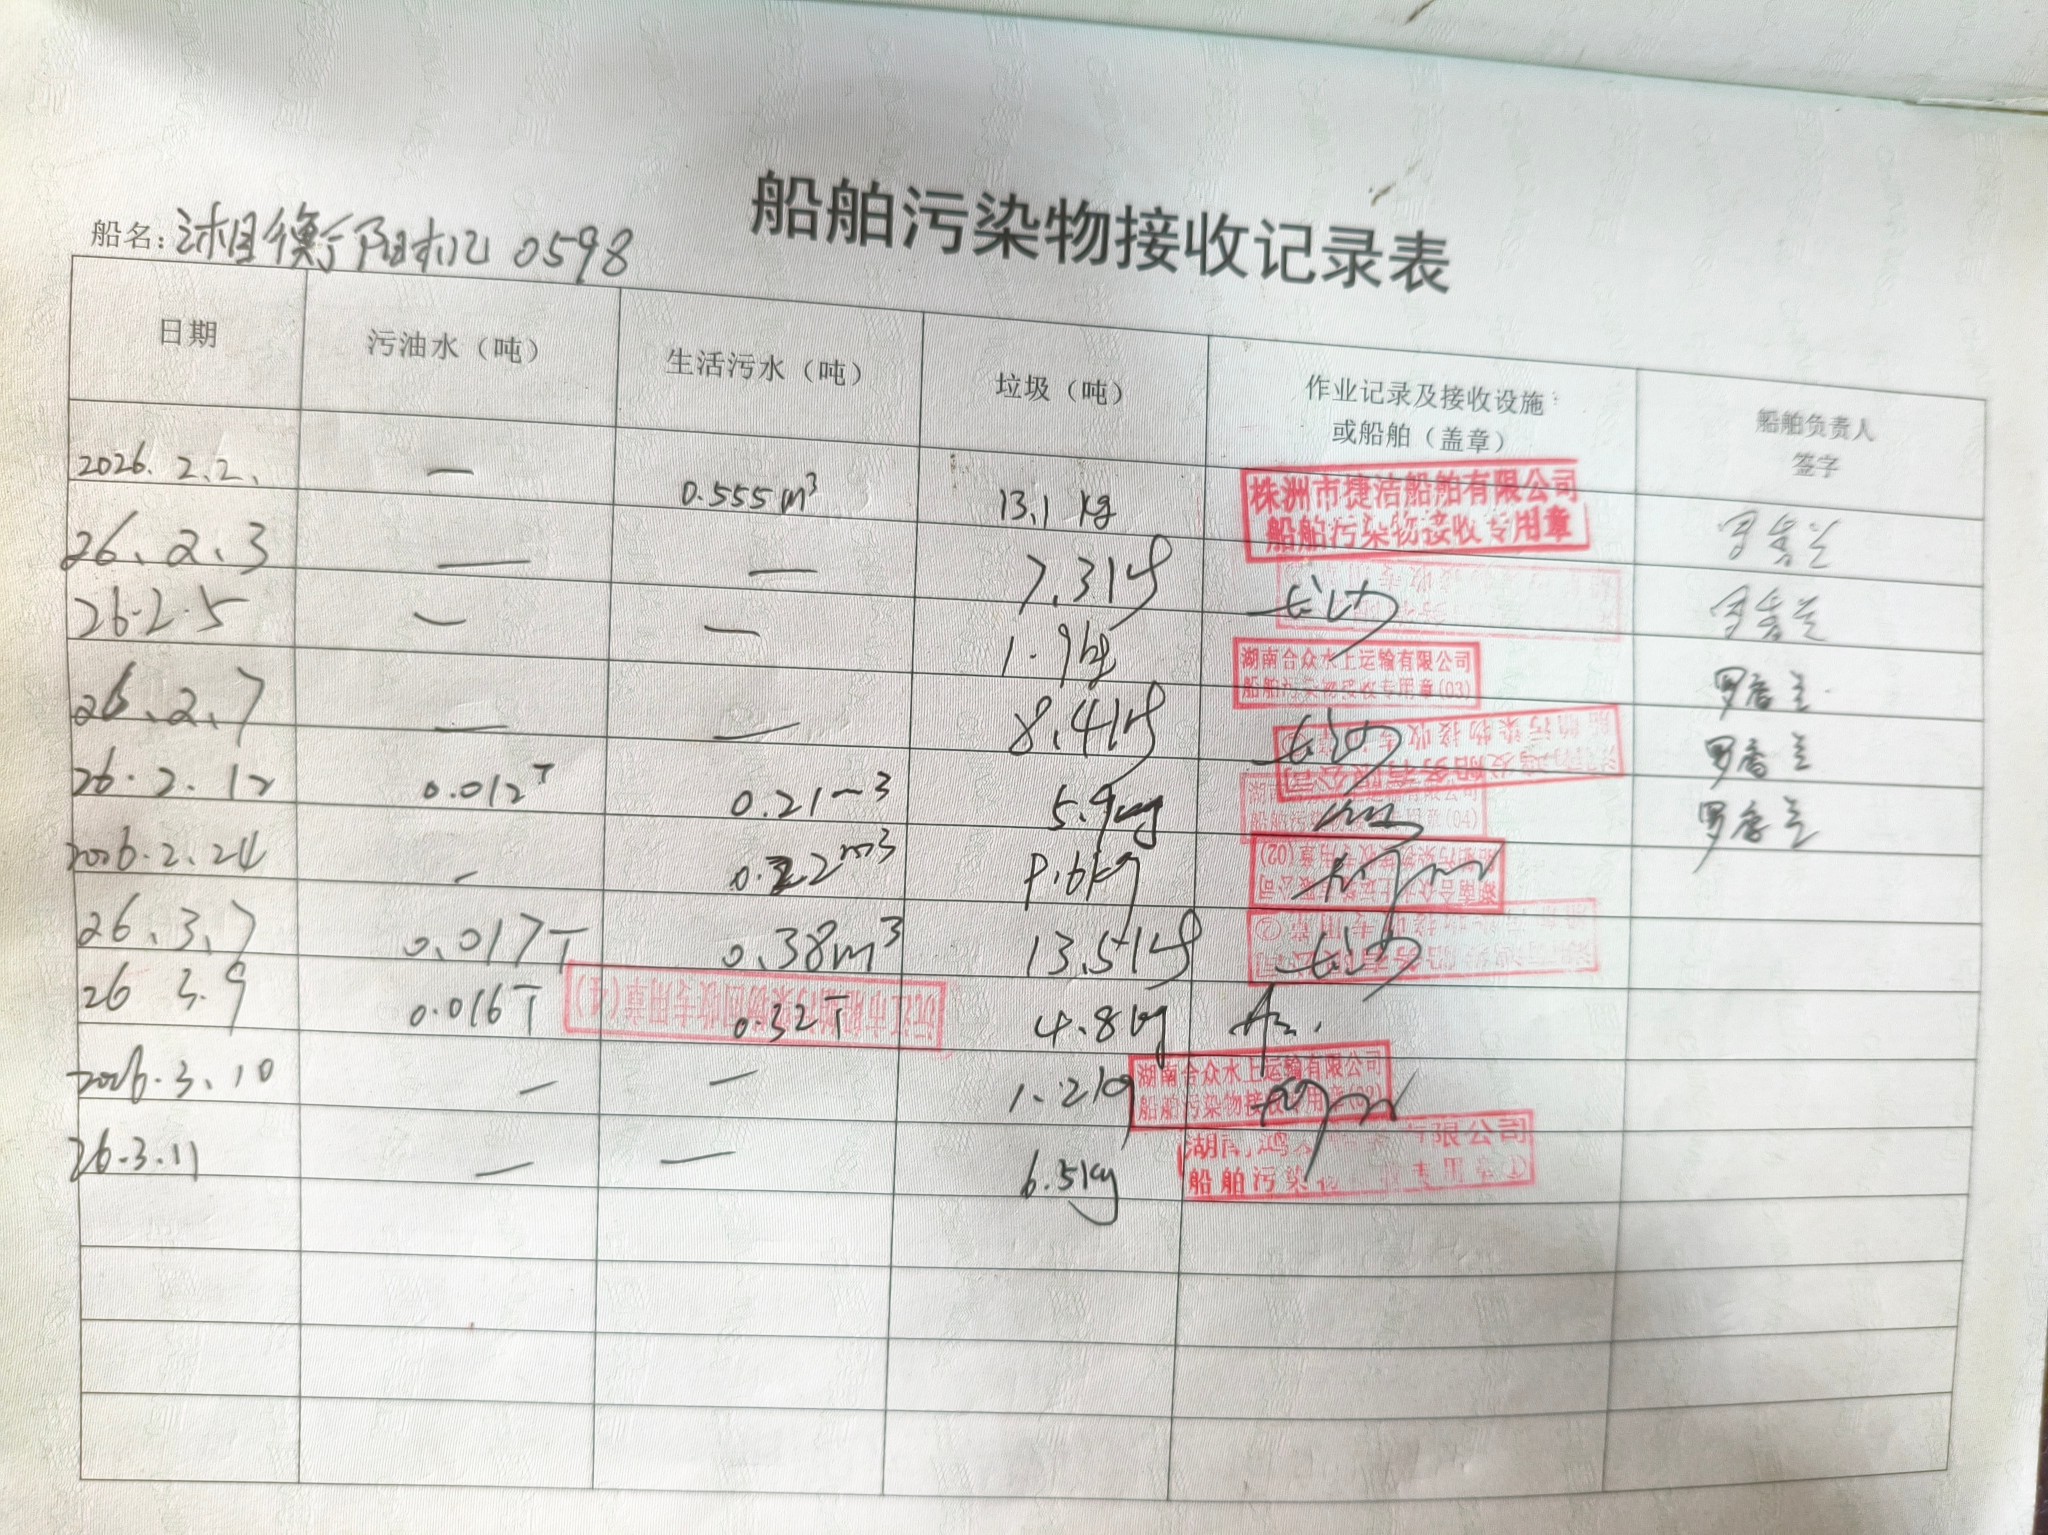 船舶污染物接收记录表
船名：湘衡阳机 0598
日期 污油水（吨） 生活污水（吨） 垃圾（吨） 作业记录及接收设施或船舶（盖章） 船舶负责人签字
2026.2.2. — 0.555m³ 13.1 kg 株洲市捷洁船舶有限公司
船舶污染物接收专用章
26、2、3 — — 7.3kg 长沙
26.2.5 — — 1.9kg 湖南合众水上运输有限公司
船舶污染物接收专用章(03) 罗香兰
26、2、7 — — 8.4kg 长沙 罗香兰
26.2.12 0.012T 0.21m³ 5.9kg 罗香兰
2026.2.24 — 0.22m³ 9.6kg 湖南合众水上运输有限公司
船舶污染物接收专用章(02)
26、3、7 0.017T 0.38m³ 13.5kg 长沙
26 3.9 0.016T 0.32T 4.8kg 沅江市船舶污染物回收专用章(4)
2026.3.10 — — 1.2kg 湖南合众水上运输有限公司
船舶污染物接收专用章(02)
26.3.11 — — 6.5kg 有限公司
船舶污染